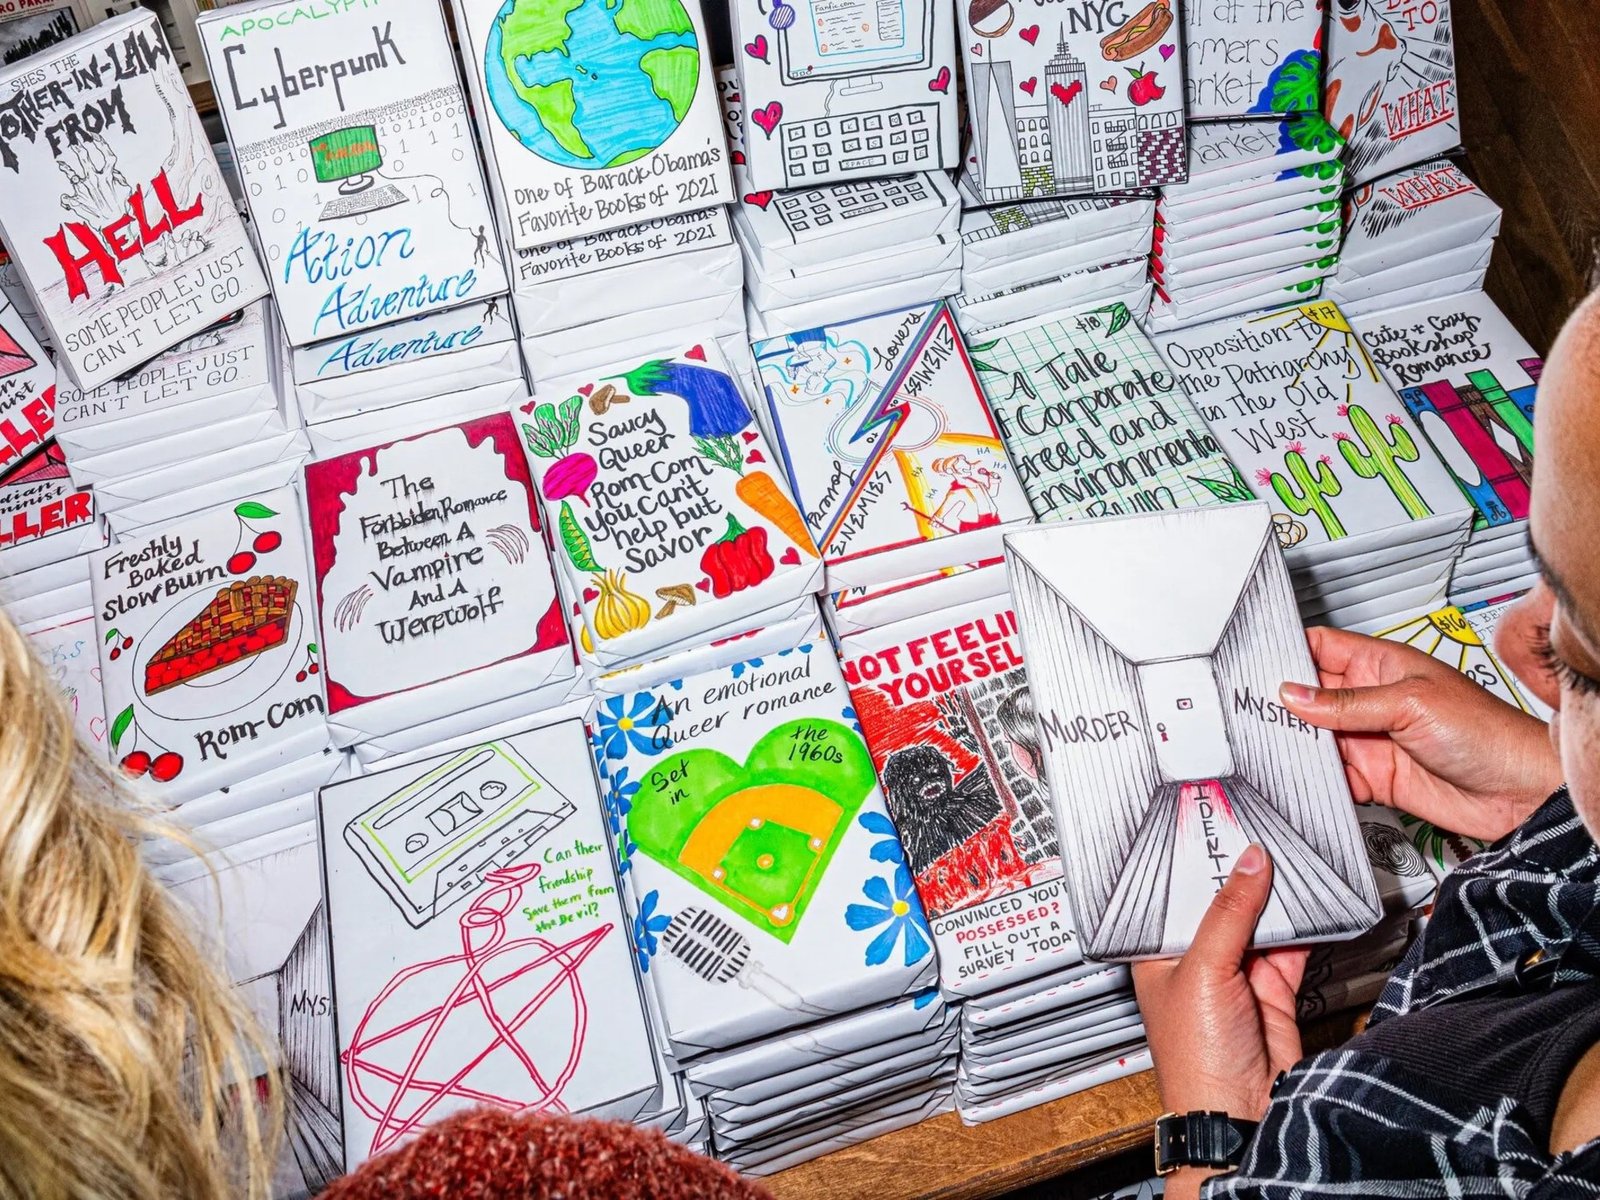 SHES THE
MOTHER-IN-LAW
FROM
HELL
SOME PEOPLE JUST
CAN'T LET GO...
SOME PEOPLE JUST
CAN'T LET GO...
APOCALYPTIC
Cyberpunk
Action
Adventure
Adventure
One of Barack Obama's
Favorite Books of 2021
One of Barack Obama's
Favorite Books of 2021
Fanfic.com
SPACE
NYC
at the
Farmers
Market
market
TO
WHAT
WHAT
KILLER
KILLER
Freshly
Baked
Slow Burn
Rom-Com
The
Forbidden Romance
Between A
Vampire
And A
Werewolf
Saucy
Queer
Rom Com
You Can't
help but
Savor
Lovers
ENEMIES
TO
Paranormal
ENEMIES
HA
HA
HA
$18
A Tale
of Corporate
Greed and
Environmental
Ruin
$17
Opposition to
the Patriarchy
in The Old
West
Cute + Cozy
Bookshop
Romance
Can their
friendship
Save them from
the Devil?
An emotional
Queer romance
Set
in
the
1960s
NOT FEELING
YOURSELF
CONVINCED YOU'RE
POSSESSED?
FILL OUT A
SURVEY TODAY
MURDER
MYSTERY
IDENTI
$16
MYS